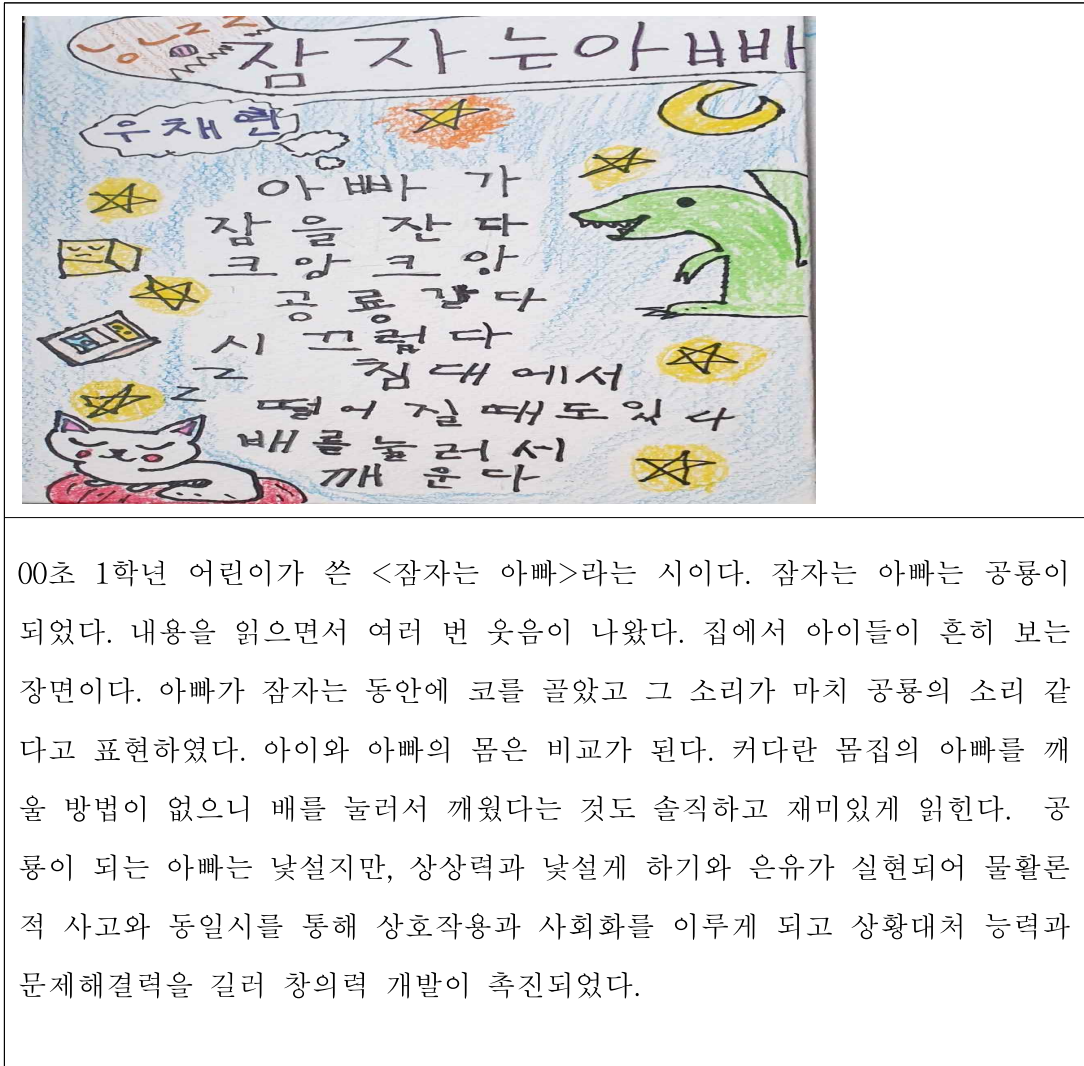 잠자는아빠
우채현
아빠가
잠을 잔다
크앙크앙
공룡같다
시끄럽다
침대에서
떨어질때도있다
배를눌러서
깨운다
00초 1학년 어린이가 쓴 <잠자는 아빠>라는 시이다. 잠자는 아빠는 공룡이
되었다. 내용을 읽으면서 여러 번 웃음이 나왔다. 집에서 아이들이 흔히 보는
장면이다. 아빠가 잠자는 동안에 코를 골았고 그 소리가 마치 공룡의 소리 같
다고 표현하였다. 아이와 아빠의 몸은 비교가 된다. 커다란 몸집의 아빠를 깨
울 방법이 없으니 배를 눌러서 깨웠다는 것도 솔직하고 재미있게 읽힌다. 공
룡이 되는 아빠는 낯설지만, 상상력과 낯설게 하기와 은유가 실현되어 물활론
적 사고와 동일시를 통해 상호작용과 사회화를 이루게 되고 상황대처 능력과
문제해결력을 길러 창의력 개발이 촉진되었다.